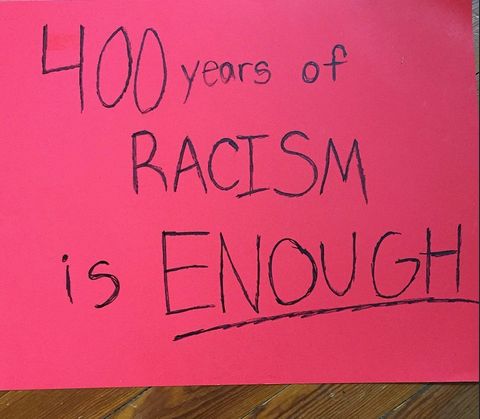 400 years of
RACISM
is ENOUGH